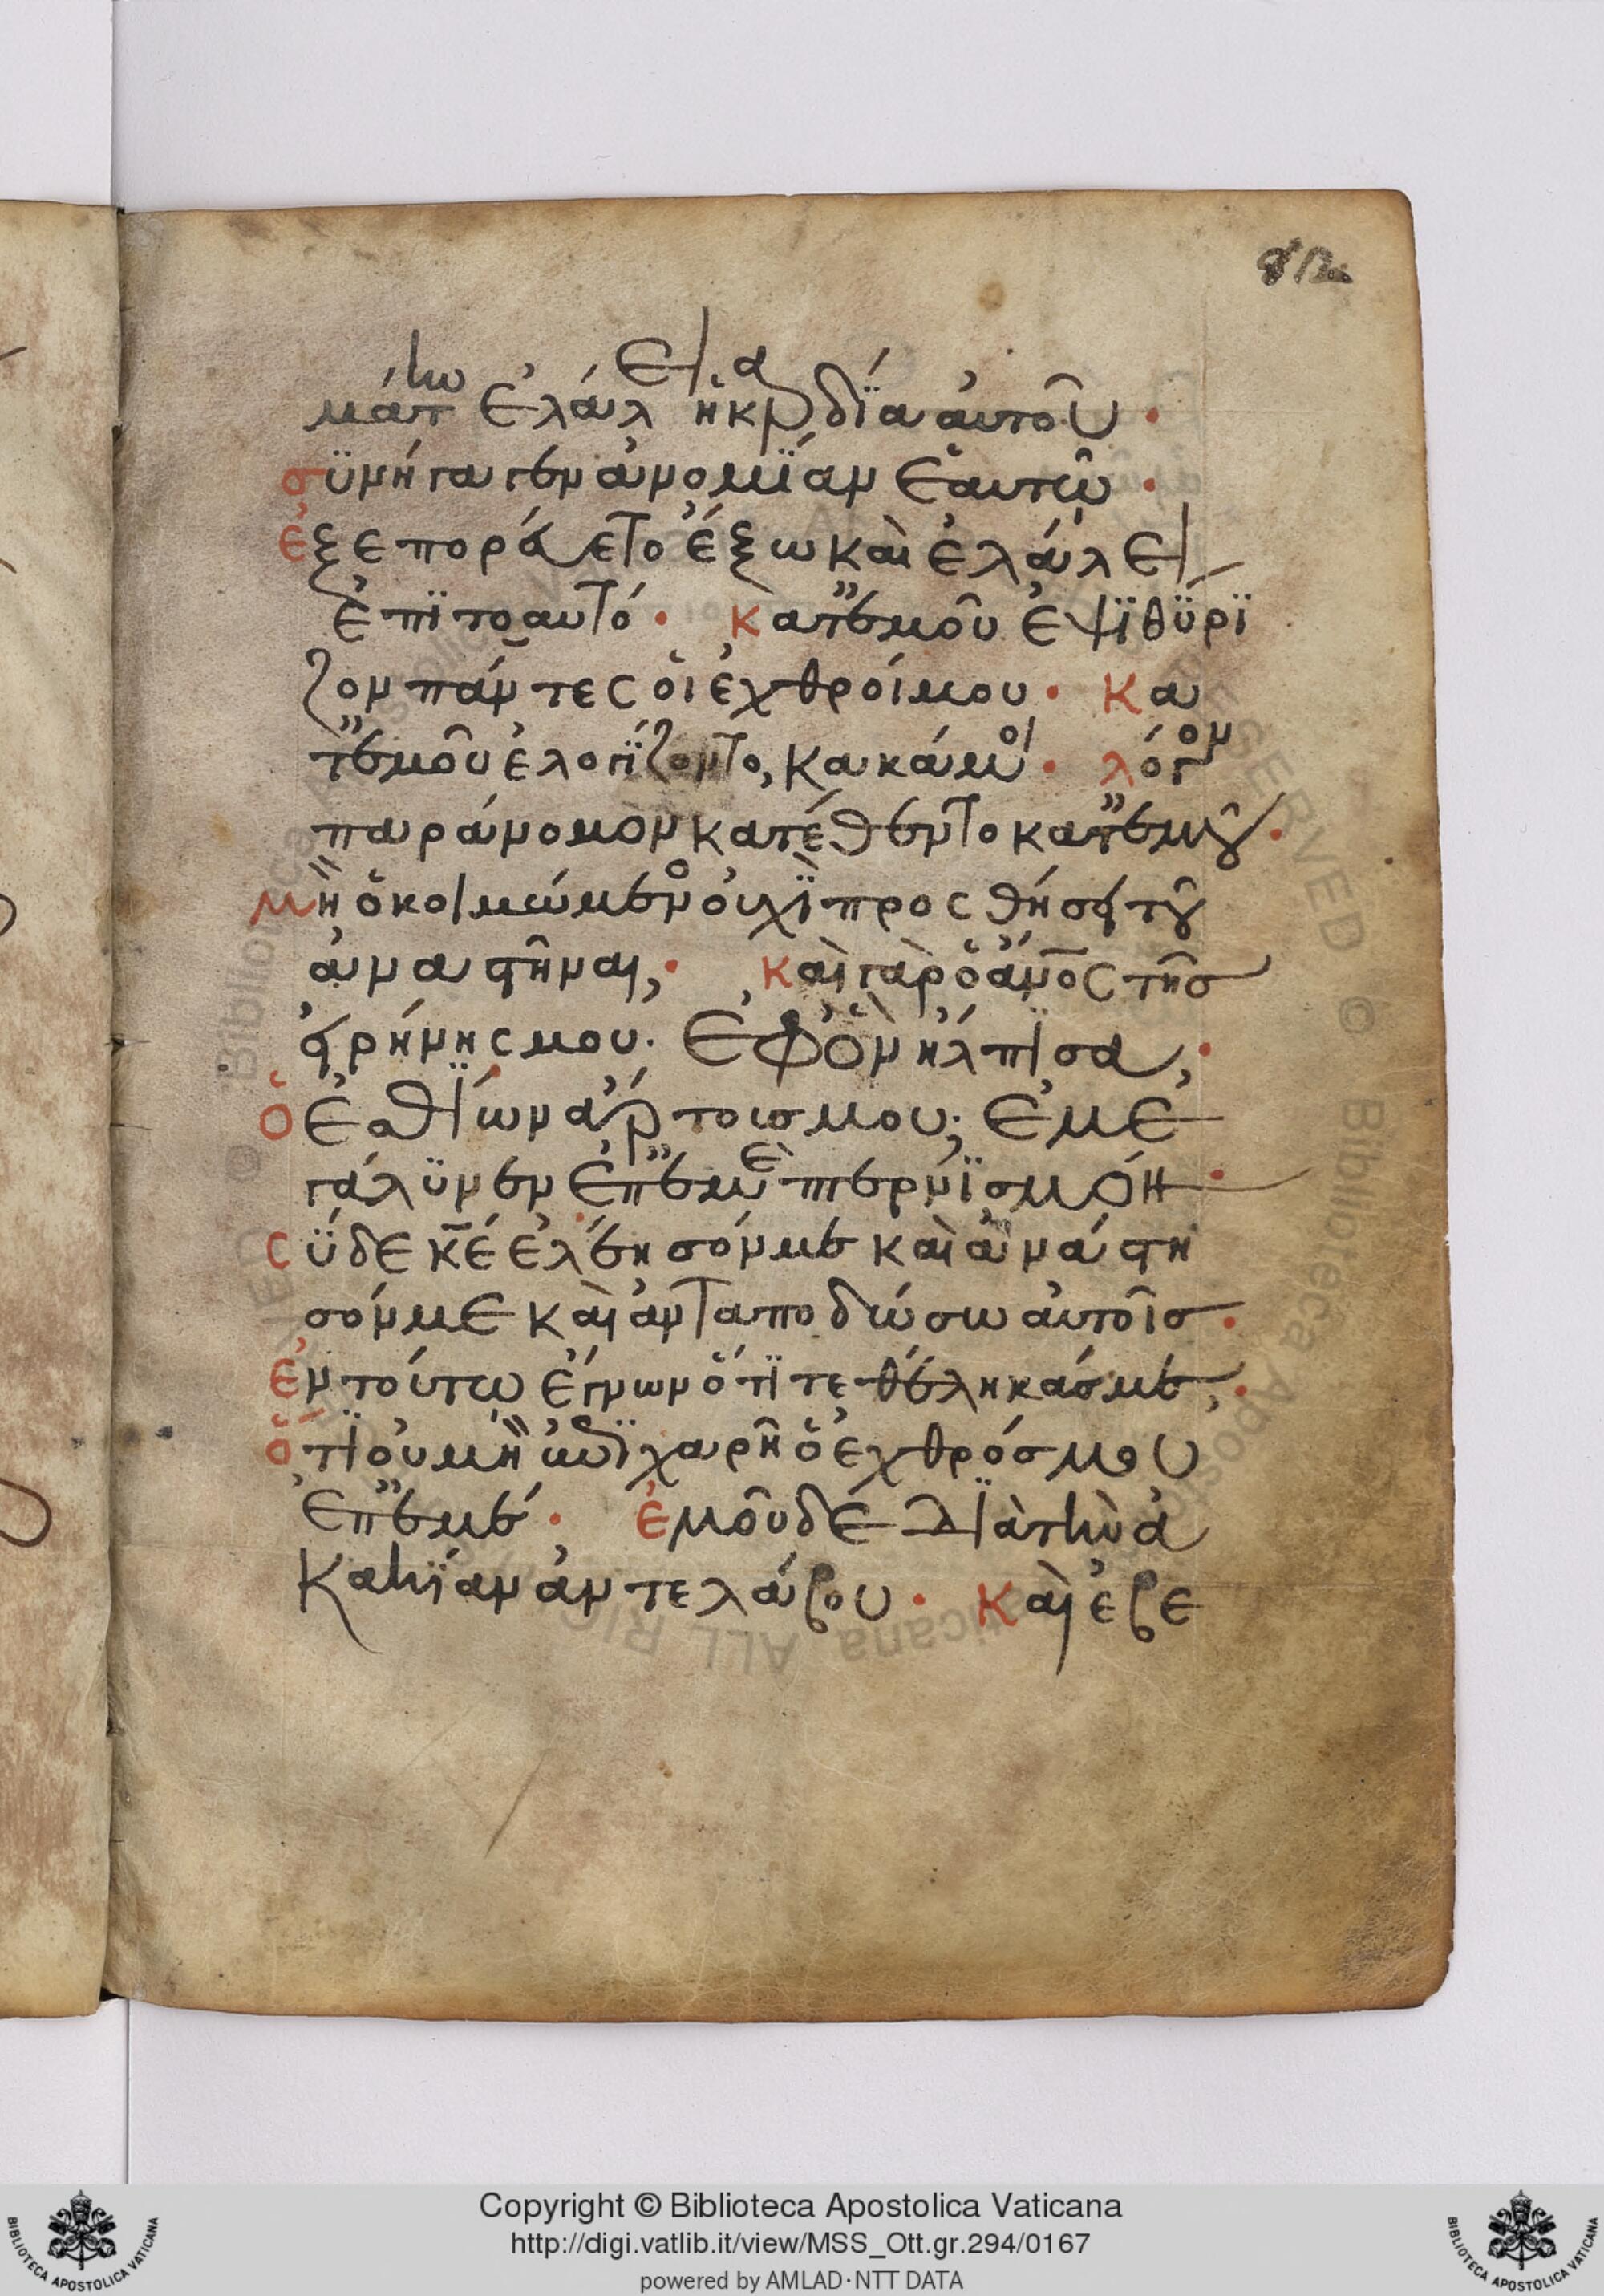 μάτην ἐλάλει ἡ καρδΐα αὐτοῦ·
σϋνήγαγεν ἀνομΐαν ἑαυτῷ·
ἐξεπορεύετο ἔξω καὶ ἐλάλει
ἐπϊτοαυτό· κατ̓ ἐμοῦ ἐψϊθϋρϊ
ζον πάντες οἱ ἐχθροί μου· κα
τ̓ ἐμοῦ ἐλογΐζοντο, κακά μοι· λόγον
παράνομον κατέθεντο κατ̓ ἐμοῦ·
μὴ ὁ κοιμώμενος οὐχῒ προσθήσει τοῦ
ἀναστῆναι,· καὶ γὰρ ὁ ἄνος τῆσ
εἰρήνης μου· ἐφ ὃν ἤλπισα,·
ὁ ἐσθΐων ἄρτουσ μου· ἐμε
γάλϋνεν ἐπ̓ ἐμὲ πτερνϊσμόν·
σϋ δε κε ἐλέησόν με καὶ ἀνάστη
σόν με καὶ ἀνταποδώσω αὐτοῖσ·
ἐν τούτῳ ἔγνων ὅτϊ τεθέληκάσ με,·
ὅτϊ οὐ μὴ ἐπϊχαρῆ ὁ ἐχθρόσ μου
ἐπ̓ ἐμέ· ἐμοῦ δέ διὰ τὴν ἀ
κακΐαν ἀντελάβου· καὶ ἐβε
Copyright © Biblioteca Apostolica Vaticana
http://digi.vatlib.it/view/MSS_Ott.gr.294/0167
powered by AMLAD·NTT DATA
BIBLIOTECA APOSTOLICA VATICANA
BIBLIOTECA APOSTOLICA VATICANA